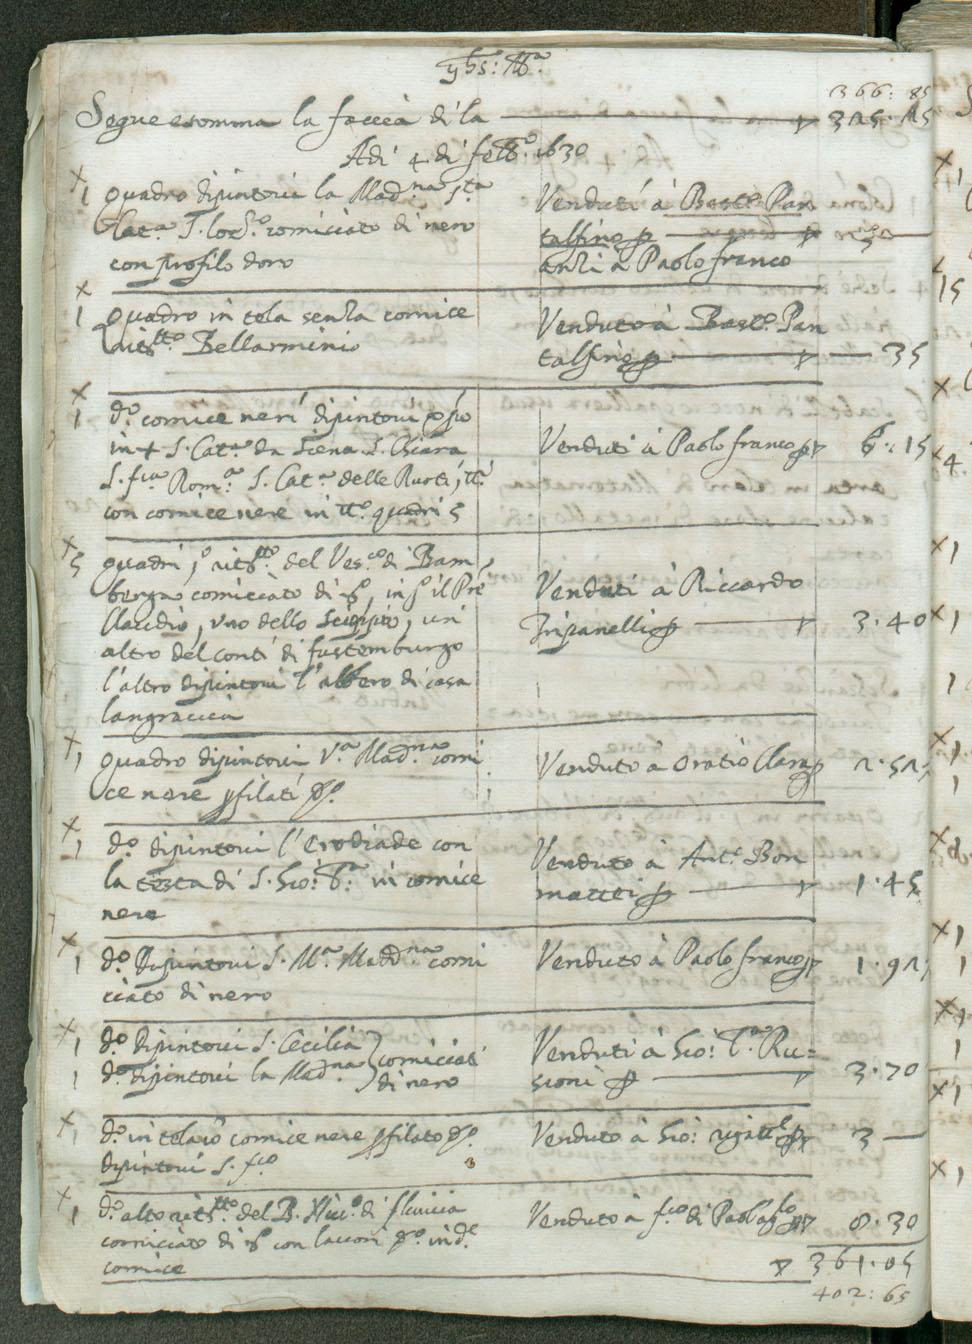 yhs: Mª
366: 85
Segue e somma la faccia di la 325. 15
Adi 4 di febbº 1630
1 quadro dipintovi la Madnª Sta
Catª S. Lorzº corniciato di nero
con profilo doro
Venduti à Bastº Pan
talfino p
anzi à Paolo franco
1 quadro in tela senza cornice
ritrtto Bellarminio
Venduto à Bastº Pan
talfino p 35
1 dº cornice neri dipintovi
in + S. Catª da Siena S. Chiara
S. fcª Romª S. Catª delle Ruoti, ttª
con cornice nere in ttº quadri 5
Venduti à Paolo franco p 6: 15
5 quadri, ritrtto del Vescº di Bam
berga corniciato di, in il Pre
Claudio, uno dello Scioppio, un
altro del conti di fustemburgo
l'altro dipintovi l'albero di casa
langravia
Venduti à Riccardo
Tripanelli p 3.40
1 quadro dipintovi Vª Madnª corni
ce nere pfilati
Venduto à Oratio Clara p 2.52
1 dº dipintovi l'Erodiade con
la testa di S. Gio: Bª in cornice
nere
Venduto à Antº Bon
mattei p 1.45
1 dº Dipintovi S. Mª Maddnª corni
ciato di nero
Venduto à Paolo franco p 1.92
1 dº dipintovi S. Cecilia
1 dº dipintovi la Madnª
corniciati
di nero
Venduti à Gio: Bª Ru=
sconi p 3.70
1 dº in telaio cornice nere pfilato
dipintovi S. fcº
Venduto à Gio: rigattre p 3
1 dº alto ritrtto del B. Nicº di fluvia
corniciato di con lacconi in dª
cornice
Venduto à fcº di Paolo p 0.30
361.05
402: 65